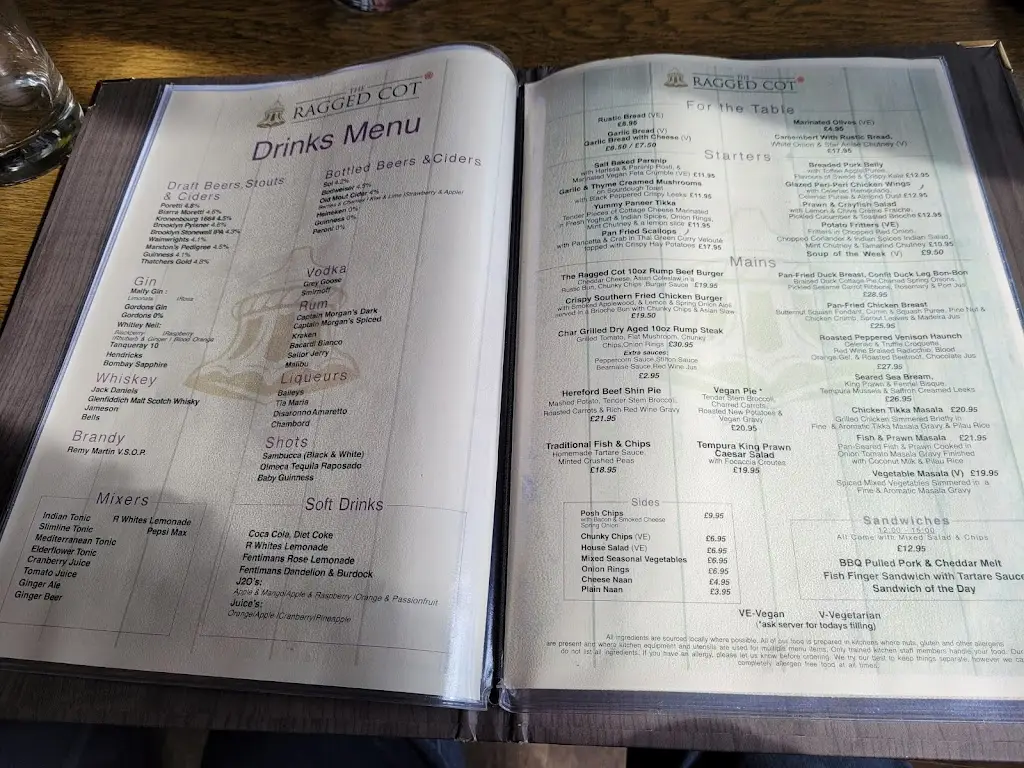 THE
RAGGED COT
Drinks Menu
Draft Beers, Stouts
& Ciders
Poretti 4.8%
Bierra Moretti 4.6%
Kronenbourg 1664 4.5%
Brooklyn Pylsner 4.6%
Brooklyn Stonewall IPA 4.3%
Wainwrights 4.1%
Marston's Pedigree 4.5%
Guinness 4.1%
Thatchers Gold 4.8%
Bottled Beers & Ciders
Sol 4.2%
Budweiser 4.5%
Old Mout Cider 4%
Berries & Cherries / Kiwi & Lime /Strawberry & Apple/
Heineken 0%
Guinness 0%
Peroni 0%
Gin
Malfy Gin :
Limonale /Rosa
Gordons Gin
Gordons 0%
Whitley Neil:
Blackberry /Raspberry
/Rhubarb & Ginger / Blood Orange
Tanqueray 10
Hendricks
Bombay Sapphire
Whiskey
Jack Daniels
Glenfiddich Malt Scotch Whisky
Jameson
Bells
Brandy
Remy Martin V.S.O.P.
Vodka
Grey Goose
Smirnoff
Rum
Captain Morgan's Dark
Captain Morgan's Spiced
Kraken
Bacardi Bianco
Sailor Jerry
Malibu
Liqueurs
Baileys
Tia Maria
Disaronno Amaretto
Chambord
Shots
Sambucca (Black & White)
Olmeca Tequila Raposado
Baby Guinness
Mixers
Indian Tonic
Slimline Tonic
Mediterranean Tonic
Elderflower Tonic
Cranberry Juice
Tomato Juice
Ginger Ale
Ginger Beer
R Whites Lemonade
Pepsi Max
Soft Drinks
Coca Cola, Diet Coke
R Whites Lemonade
Fentimans Rose Lemonade
Fentimans Dandelion & Burdock
J2O's:
Apple & Mango/Apple & Raspberry /Orange & Passionfruit
Juice's:
Orange/Apple /Cranberry/Pineapple
THE
RAGGED COT
For the Table
Rustic Bread (VE)
£6.95
Garlic Bread (V)
Garlic Bread with Cheese (V)
£6.50 / £7.50
Marinated Olives (VE)
£4.95
Camembert With Rustic Bread,
White Onion & Star Anise Chutney (V)
£17.95
Starters
Salt Baked Parsnip
with Harissa & Parsnip Rosti, &
Marinated Vegan Feta Crumble (VE) £11.95
Garlic & Thyme Creamed Mushrooms
Sourdough Toast
with Black Peppered Crispy Leeks £11.95
Yummy Paneer Tikka
Tender Pieces of Cottage Cheese Marinated
in Fresh Yoghurt & Indian Spices, Onion Rings,
Mint Chutney & a lemon slice £11.95
Pan Fried Scallops
with Pancetta & Crab in Thai Green Corry Velouté
topped with Crispy Hay Potatoes £17.95
Breaded Pork Belly
with Toffee Apple Purée,
Flavours of Swede & Crispy Kale £12.95
Glazed Peri-Peri Chicken Wings
with Celeriac Remoulade,
Celeriac Puree & Almond Dust £12.95
Prawn & Crayfish Salad
with Lemon & Chive Crème Fraiche,
Pickled Cucumber & Toasted Brioche £12.95
Potato Fritters (VE)
Fritters in Chopped Red Onion,
Chopped Coriander & Indian Spices Indian Salad,
Mint Chutney & Tamarind Chutney £10.95
Soup of the Week (V) £9.50
Mains
The Ragged Cot 10oz Rump Beef Burger
Cheddar Cheese, Asian Coleslaw in a
Rustic Bun, Chunky Chips Burger Sauce £19.95
Crispy Southern Fried Chicken Burger
with Smoked Applewood, & Lemon & Spring Onion Aioli
served in a Brioche Bun with Chunky Chips & Asian Slaw
£19.50
Char Grilled Dry Aged 10oz Rump Steak
Grilled Tomato, Flat Mushroom, Chunky
Chips,Onion Rings £30.95
Extra sauces:
Peppercorn Sauce,Stilton Sauce
Bearnaise Sauce Red Wine Jus
£2.95
Hereford Beef Shin Pie
Mashed Potato, Tender Stem Broccoli,
Roasted Carrots & Rich Red Wine Gravy
£21.95
Vegan Pie *
Tender Stem Broccoli,
Charred Carrots,
Roasted New Potatoes &
Vegan Gravy
£20.95
Traditional Fish & Chips
Homemade Tartare Sauce,
Minted Crushed Peas
£18.95
Tempura King Prawn
Caesar Salad
with Focaccia Croutes
£19.95
Pan-Fried Duck Breast, Confit Duck Leg Bon-Bon
Braised Duck Cottage Pie,Charred Spring Onions,
Pickled Sesame Carrot Ribbons, Rosemary & Port Jus
£28.95
Pan-Fried Chicken Breast
Butternut Squash Fondant, Cumin & Squash Puree, Pine Nut &
Chicken Crumb, Sprout Leaves & Madeira Jus
£25.95
Roasted Peppered Venison Haunch
Celeriac & Truffle Croquette,
Red Wine Braised Radicchio, Blood
Orange Gel, & Roasted Beetroot, Chocolate Jus
£27.95
Seared Sea Bream,
King Prawn & Fennel Bisque,
Tempura Mussels & Saffron Creamed Leeks
£26.95
Chicken Tikka Masala £20.95
Grilled Chicken Simmered Briefly in
Fine & Aromatic Tikka Masala Gravy & Pilau Rice
Fish & Prawn Masala £21.95
Pan-Seared Fish & Prawn Cooked in
Onion Tomato Masala Gravy Finished
with Coconut Milk & Pilau Rice
Vegetable Masala (V) £19.95
Spiced Mixed Vegetables Simmered in a
Fine & Aromatic Masala Gravy
Sides
Posh Chips £9.95
with Bacon & Smoked Cheese
Spring Onion
Chunky Chips (VE) £6.95
House Salad (VE) £6.95
Mixed Seasonal Vegetables £6.95
Onion Rings £6.95
Cheese Naan £4.95
Plain Naan £3.95
Sandwiches
12:00 - 16:00
All Come with Mixed Salad & Chips
£12.95
BBQ Pulled Pork & Cheddar Melt
Fish Finger Sandwich with Tartare Sauce
Sandwich of the Day
VE-Vegan V-Vegetarian
(*ask server for todays filling)
All ingredients are sourced locally where possible. All of our food is prepared in kitchens where nuts, gluten and other allergens
are present and where kitchen equipment and utensils are used for multiple menu items. Only trained kitchen staff members handle your food. Our
do not list all ingredients. If you have an allergy, please let us know before ordering. We try our best to keep things separate, however we ca
completely allergen free food at all times.